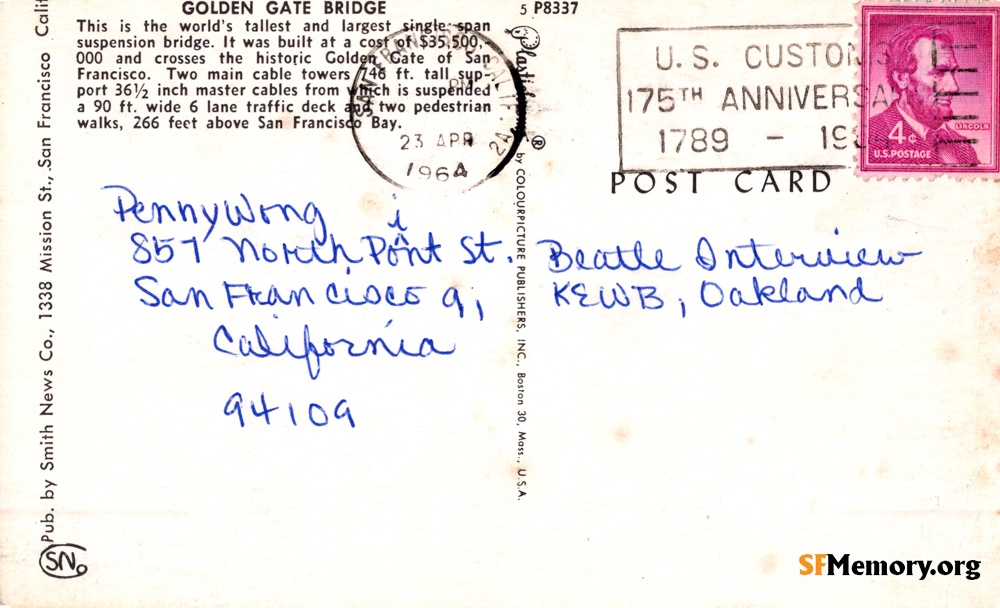 GOLDEN GATE BRIDGE
This is the world's tallest and largest single span
suspension bridge. It was built at a cost of $35,500,-
000 and crosses the historic Golden Gate of San
Francisco. Two main cable towers 746 ft. tall sup-
port 36½ inch master cables from which is suspended
a 90 ft. wide 6 lane traffic deck and two pedestrian
walks, 266 feet above San Francisco Bay.
5 P8337
SAN FRANCISCO CALIF.
PM
23 APR
1964
2A
U.S. CUSTOMS
175TH ANNIVERSA
1789 - 19
4¢
LINCOLN
U.S. POSTAGE
POST CARD
Penny Wong
i
857 North Pont St.
San Francisco 9,
California
94109
Beatle Interview
KEWB, Oakland
Pub. by Smith News Co., 1338 Mission St., San Francisco Calif
® by COLOURPICTURE PUBLISHERS, INC., Boston 30, Mass., U.S.A.
SN
SFMemory.org